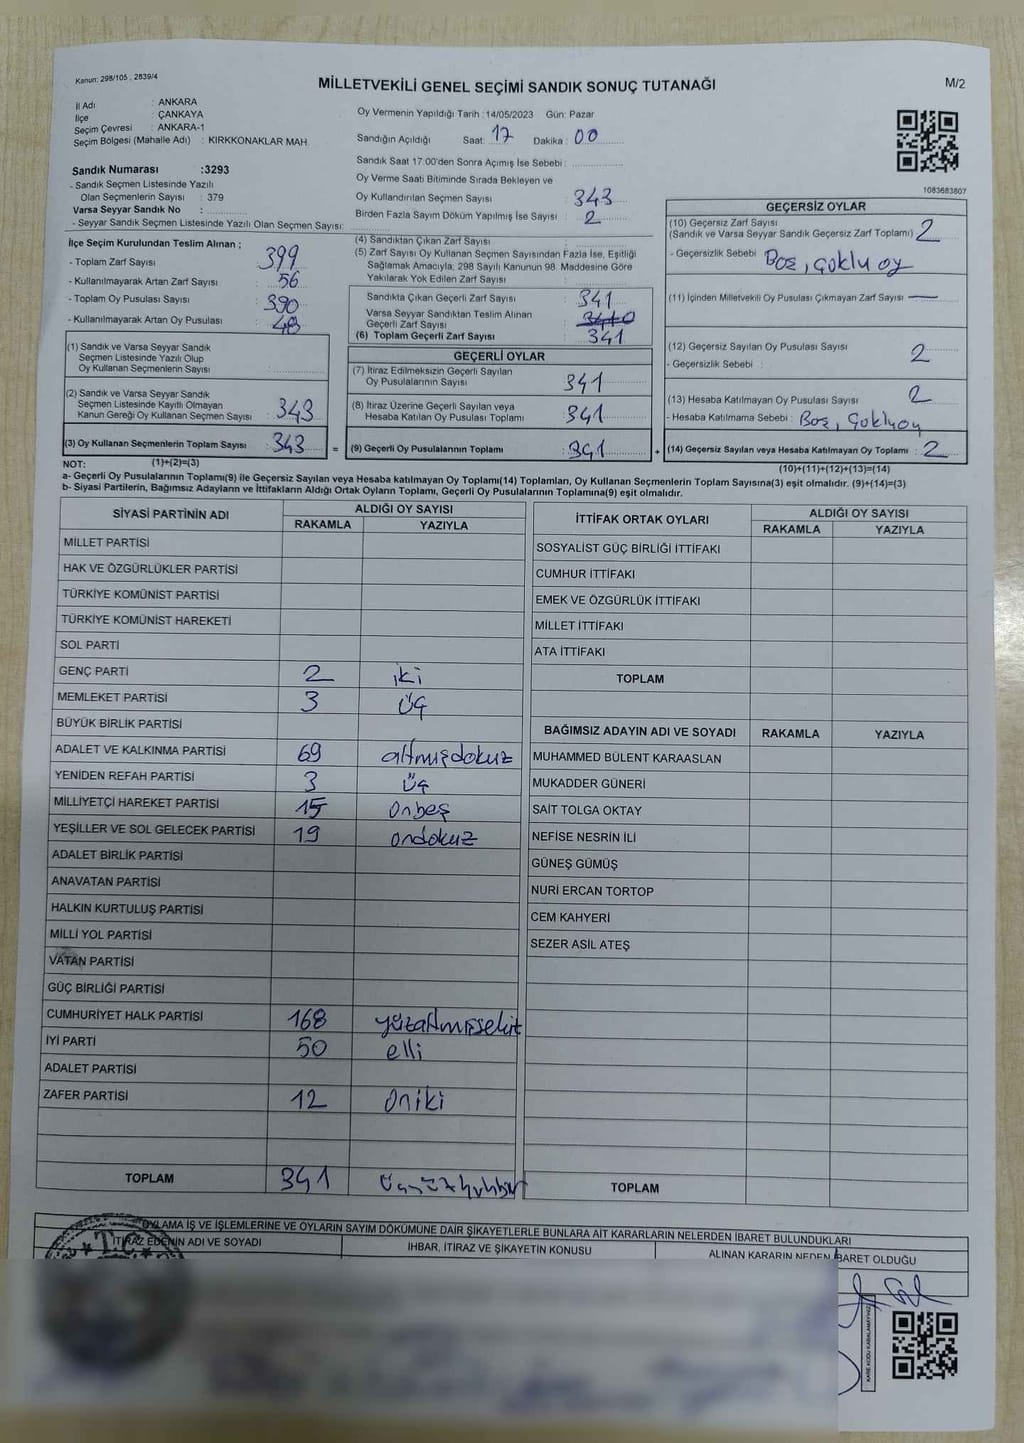 Kanun: 298/105 , 2839/4
MİLLETVEKİLİ GENEL SEÇİMİ SANDIK SONUÇ TUTANAĞI
M/2
İl Adı : ANKARA
İlçe : ÇANKAYA
Seçim Çevresi : ANKARA-1
Seçim Bölgesi (Mahalle Adı) : KIRKKONAKLAR MAH.
Sandık Numarası :3293
- Sandık Seçmen Listesinde Yazılı
Olan Seçmenlerin Sayısı : 379
Varsa Seyyar Sandık No :
- Seyyar Sandık Seçmen Listesinde Yazılı Olan Seçmen Sayısı:
Oy Vermenin Yapıldığı Tarih :14/05/2023 Gün: Pazar
Sandığın Açıldığı Saat: 17 Dakika: 00
Sandık Saat 17.00'den Sonra Açımış İse Sebebi :
Oy Verme Saati Bitiminde Sırada Bekleyen ve
Oy Kullandırılan Seçmen Sayısı : 343
Birden Fazla Sayım Döküm Yapılmış İse Sayısı : 2
1083683807
İlçe Seçim Kurulundan Teslim Alınan ;
- Toplam Zarf Sayısı : 399
- Kullanılmayarak Artan Zarf Sayısı : 56
- Toplam Oy Pusulası Sayısı : 390
- Kullanılmayarak Artan Oy Pusulası : 48
(1) Sandık ve Varsa Seyyar Sandık
Seçmen Listesinde Yazılı Olup
Oy Kullanan Seçmenlerin Sayısı :
(2) Sandık ve Varsa Seyyar Sandık
Seçmen Listesinde Kayıtlı Olmayan
Kanun Gereği Oy Kullanan Seçmen Sayısı : 343
(3) Oy Kullanan Seçmenlerin Toplam Sayısı : 343 =
(4) Sandıktan Çıkan Zarf Sayısı :
(5) Zarf Sayısı Oy Kullanan Seçmen Sayısından Fazla İse, Eşitliği
Sağlamak Amacıyla, 298 Sayılı Kanunun 98. Maddesine Göre
Yakılarak Yok Edilen Zarf Sayısı :
Sandıkta Çıkan Geçerli Zarf Sayısı : 341
Varsa Seyyar Sandıktan Teslim Alınan
Geçerli Zarf Sayısı :
(6) Toplam Geçerli Zarf Sayısı : 341
GEÇERLİ OYLAR
(7) İtiraz Edilmeksizin Geçerli Sayılan
Oy Pusulalarının Sayısı : 341
(8) İtiraz Üzerine Geçerli Sayılan veya
Hesaba Katılan Oy Pusulaları Toplamı : 341
(9) Geçerli Oy Pusulalarının Toplamı : 341 +
GEÇERSİZ OYLAR
(10) Geçersiz Zarf Sayısı
(Sandık ve Varsa Seyyar Sandık Geçersiz Zarf Toplamı) : 2
- Geçersizlik Sebebi : Boş, çoklu oy
(11) İçinden Milletvekili Oy Pusulası Çıkmayan Zarf Sayısı : —
(12) Geçersiz Sayılan Oy Pusulası Sayısı : 2
- Geçersizlik Sebebi :
(13) Hesaba Katılmayan Oy Pusulası Sayısı : 2
- Hesaba Katılmama Sebebi : Boş, Çoklu oy
(14) Geçersiz Sayılan veya Hesaba Katılmayan Oy Toplamı : 2
NOT: (1)+(2)=(3)
(10)+(11)+(12)+(13)=(14)
a- Geçerli Oy Pusulalarının Toplamı(9) ile Geçersiz Sayılan veya Hesaba katılmayan Oy Toplamı(14) Toplamları, Oy Kullanan Seçmenlerin Toplam Sayısına(3) eşit olmalıdır. (9)+(14)=(3)
b- Siyasi Partilerin, Bağımsız Adayların ve İttifakların Aldığı Ortak Oyların Toplamı, Geçerli Oy Pusulalarının Toplamına(9) eşit olmalıdır.
SİYASİ PARTİNİN ADI
ALDIĞI OY SAYISI
RAKAMLA YAZIYLA
MİLLET PARTİSİ
HAK VE ÖZGÜRLÜKLER PARTİSİ
TÜRKİYE KOMÜNİST PARTİSİ
TÜRKİYE KOMÜNİST HAREKETİ
SOL PARTİ
GENÇ PARTİ 2 iki
MEMLEKET PARTİSİ 3 üç
BÜYÜK BİRLİK PARTİSİ
ADALET VE KALKINMA PARTİSİ 69 altmışdokuz
YENİDEN REFAH PARTİSİ 3 üç
MİLLİYETÇİ HAREKET PARTİSİ 15 onbeş
YEŞİLLER VE SOL GELECEK PARTİSİ 19 ondokuz
ADALET BİRLİK PARTİSİ
ANAVATAN PARTİSİ
HALKIN KURTULUŞ PARTİSİ
MİLLİ YOL PARTİSİ
VATAN PARTİSİ
GÜÇ BİRLİĞİ PARTİSİ
CUMHURİYET HALK PARTİSİ 168 yüzaltmışsekiz
İYİ PARTİ 50 elli
ADALET PARTİSİ
ZAFER PARTİSİ 12 oniki
TOPLAM 341
İTTİFAK ORTAK OYLARI
ALDIĞI OY SAYISI
RAKAMLA YAZIYLA
SOSYALİST GÜÇ BİRLİĞİ İTTİFAKI
CUMHUR İTTİFAKI
EMEK VE ÖZGÜRLÜK İTTİFAKI
MİLLET İTTİFAKI
ATA İTTİFAKI
TOPLAM
BAĞIMSIZ ADAYIN ADI VE SOYADI RAKAMLA YAZIYLA
MUHAMMED BÜLENT KARAASLAN
MUKADDER GÜNERİ
SAİT TOLGA OKTAY
NEFİSE NESRİN İLİ
GÜNEŞ GÜMÜŞ
NURİ ERCAN TORTOP
CEM KAHYERİ
SEZER ASİL ATEŞ
TOPLAM
OYLAMA İŞ VE İŞLEMLERİNE VE OYLARIN SAYIM DÖKÜMÜNE DAİR ŞİKAYETLERLE BUNLARA AİT KARARLARIN NELERDEN İBARET BULUNDUKLARI
İTİRAZ EDENİN ADI VE SOYADI
İHBAR, İTİRAZ VE ŞİKAYETİN KONUSU
ALINAN KARARIN NEDEN İBARET OLDUĞU
T.C.
KARE KODU KARALAMAYINIZ